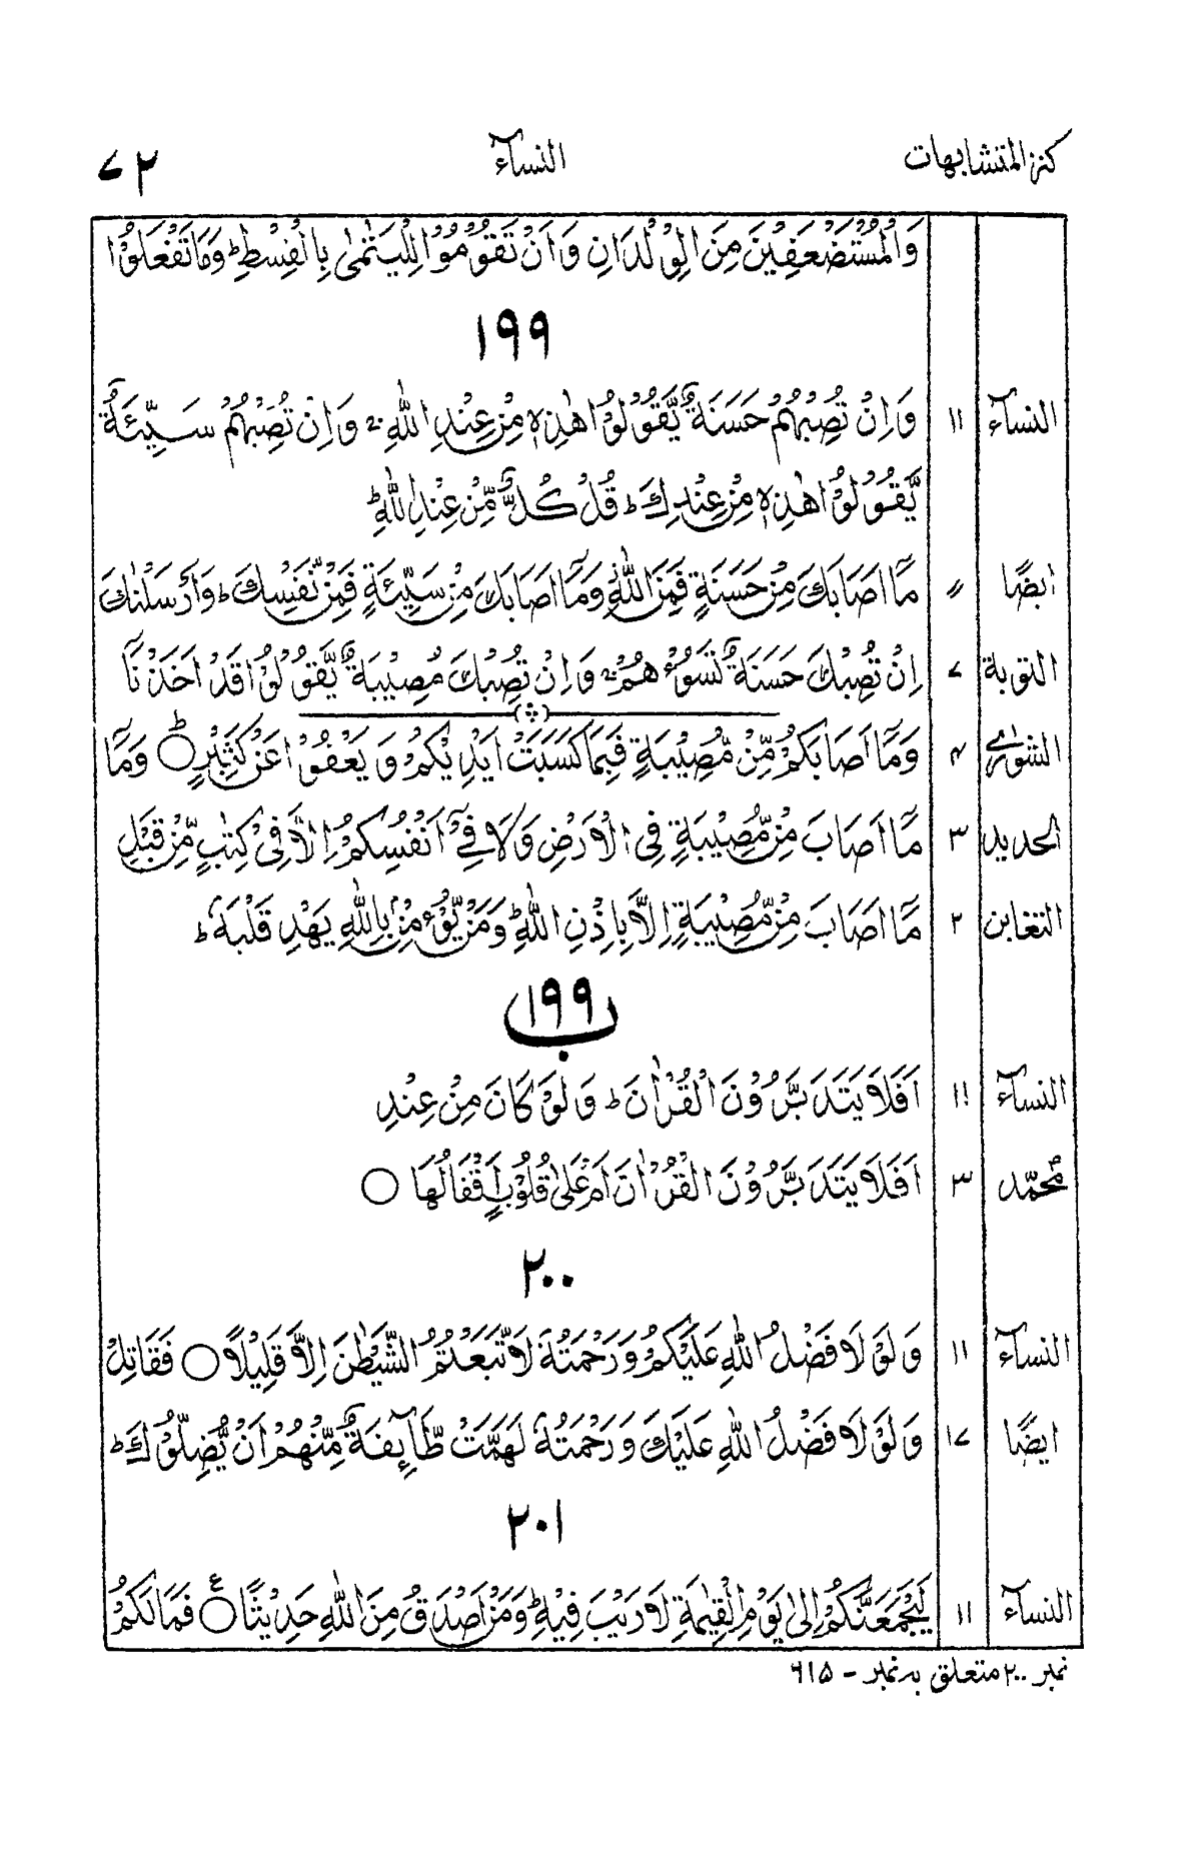 كنز المتشابهات النساۤء ۷۲
وَالْمُسْتَضْعَفِيْنَ مِنَ الْوِلْدَانِ وَاَنْ تَقُوْمُوْا لِلْيَتٰمٰى بِالْقِسْطِ ؕ وَمَا تَفْعَلُوْا
۱۹۹
النساۤء ۱۱ وَاِنْ تُصِبْهُمْ حَسَنَةٌ يَّقُوْلُوْا هٰذِهٖ مِنْ عِنْدِ اللّٰهِ ۚ وَاِنْ تُصِبْهُمْ سَيِّئَةٌ
يَّقُوْلُوْا هٰذِهٖ مِنْ عِنْدِكَ ؕ قُلْ كُلٌّ مِّنْ عِنْدِ اللّٰهِ ؕ
ايضًا 〃 مَاۤ اَصَابَكَ مِنْ حَسَنَةٍ فَمِنَ اللّٰهِ وَمَاۤ اَصَابَكَ مِنْ سَيِّئَةٍ فَمِنْ نَّفْسِكَ ؕ وَاَرْسَلْنٰكَ
التوبة ۷ اِنْ تُصِبْكَ حَسَنَةٌ تَسُؤْهُمْ ۚ وَاِنْ تُصِبْكَ مُصِيْبَةٌ يَّقُوْلُوْا قَدْ اَخَذْنَاۤ
الشورٰى ۴ وَمَاۤ اَصَابَكُمْ مِّنْ مُّصِيْبَةٍ فَبِمَا كَسَبَتْ اَيْدِيْكُمْ وَيَعْفُوْا عَنْ كَثِيْرٍ ○ؕ وَمَاۤ
الحديد ۳ مَاۤ اَصَابَ مِنْ مُّصِيْبَةٍ فِى الْاَرْضِ وَلَا فِىْۤ اَنْفُسِكُمْ اِلَّا فِىْ كِتٰبٍ مِّنْ قَبْلِ
التغابن ۲ مَاۤ اَصَابَ مِنْ مُّصِيْبَةٍ اِلَّا بِاِذْنِ اللّٰهِ ؕ وَمَنْ يُّؤْمِنْ بِاللّٰهِ يَهْدِ قَلْبَهٗ ؕ
۱۹۹ ب
النساۤء ۱۱ اَفَلَا يَتَدَبَّرُوْنَ الْقُرْاٰنَ ؕ وَلَوْ كَانَ مِنْ عِنْدِ
محمّد ۳ اَفَلَا يَتَدَبَّرُوْنَ الْقُرْاٰنَ اَمْ عَلٰى قُلُوْبٍ اَقْفَالُهَا ○
۲۰۰
النساۤء ۱۱ وَلَوْ لَا فَضْلُ اللّٰهِ عَلَيْكُمْ وَرَحْمَتُهٗ لَاتَّبَعْتُمُ الشَّيْطٰنَ اِلَّا قَلِيْلًا ○ فَقَاتِلْ
ايضًا ۱۷ وَلَوْ لَا فَضْلُ اللّٰهِ عَلَيْكَ وَرَحْمَتُهٗ لَهَمَّتْ طَّاۤئِفَةٌ مِّنْهُمْ اَنْ يُّضِلُّوْكَ ؕ
۲۰۱
النساۤء ۱۱ لَيَجْمَعَنَّكُمْ اِلٰى يَوْمِ الْقِيٰمَةِ لَا رَيْبَ فِيْهِ ؕ وَمَنْ اَصْدَقُ مِنَ اللّٰهِ حَدِيْثًا ○ع فَمَا لَكُمْ
نمبر ۲۰۰ متعلق بہ نمبر - ۶۱۵